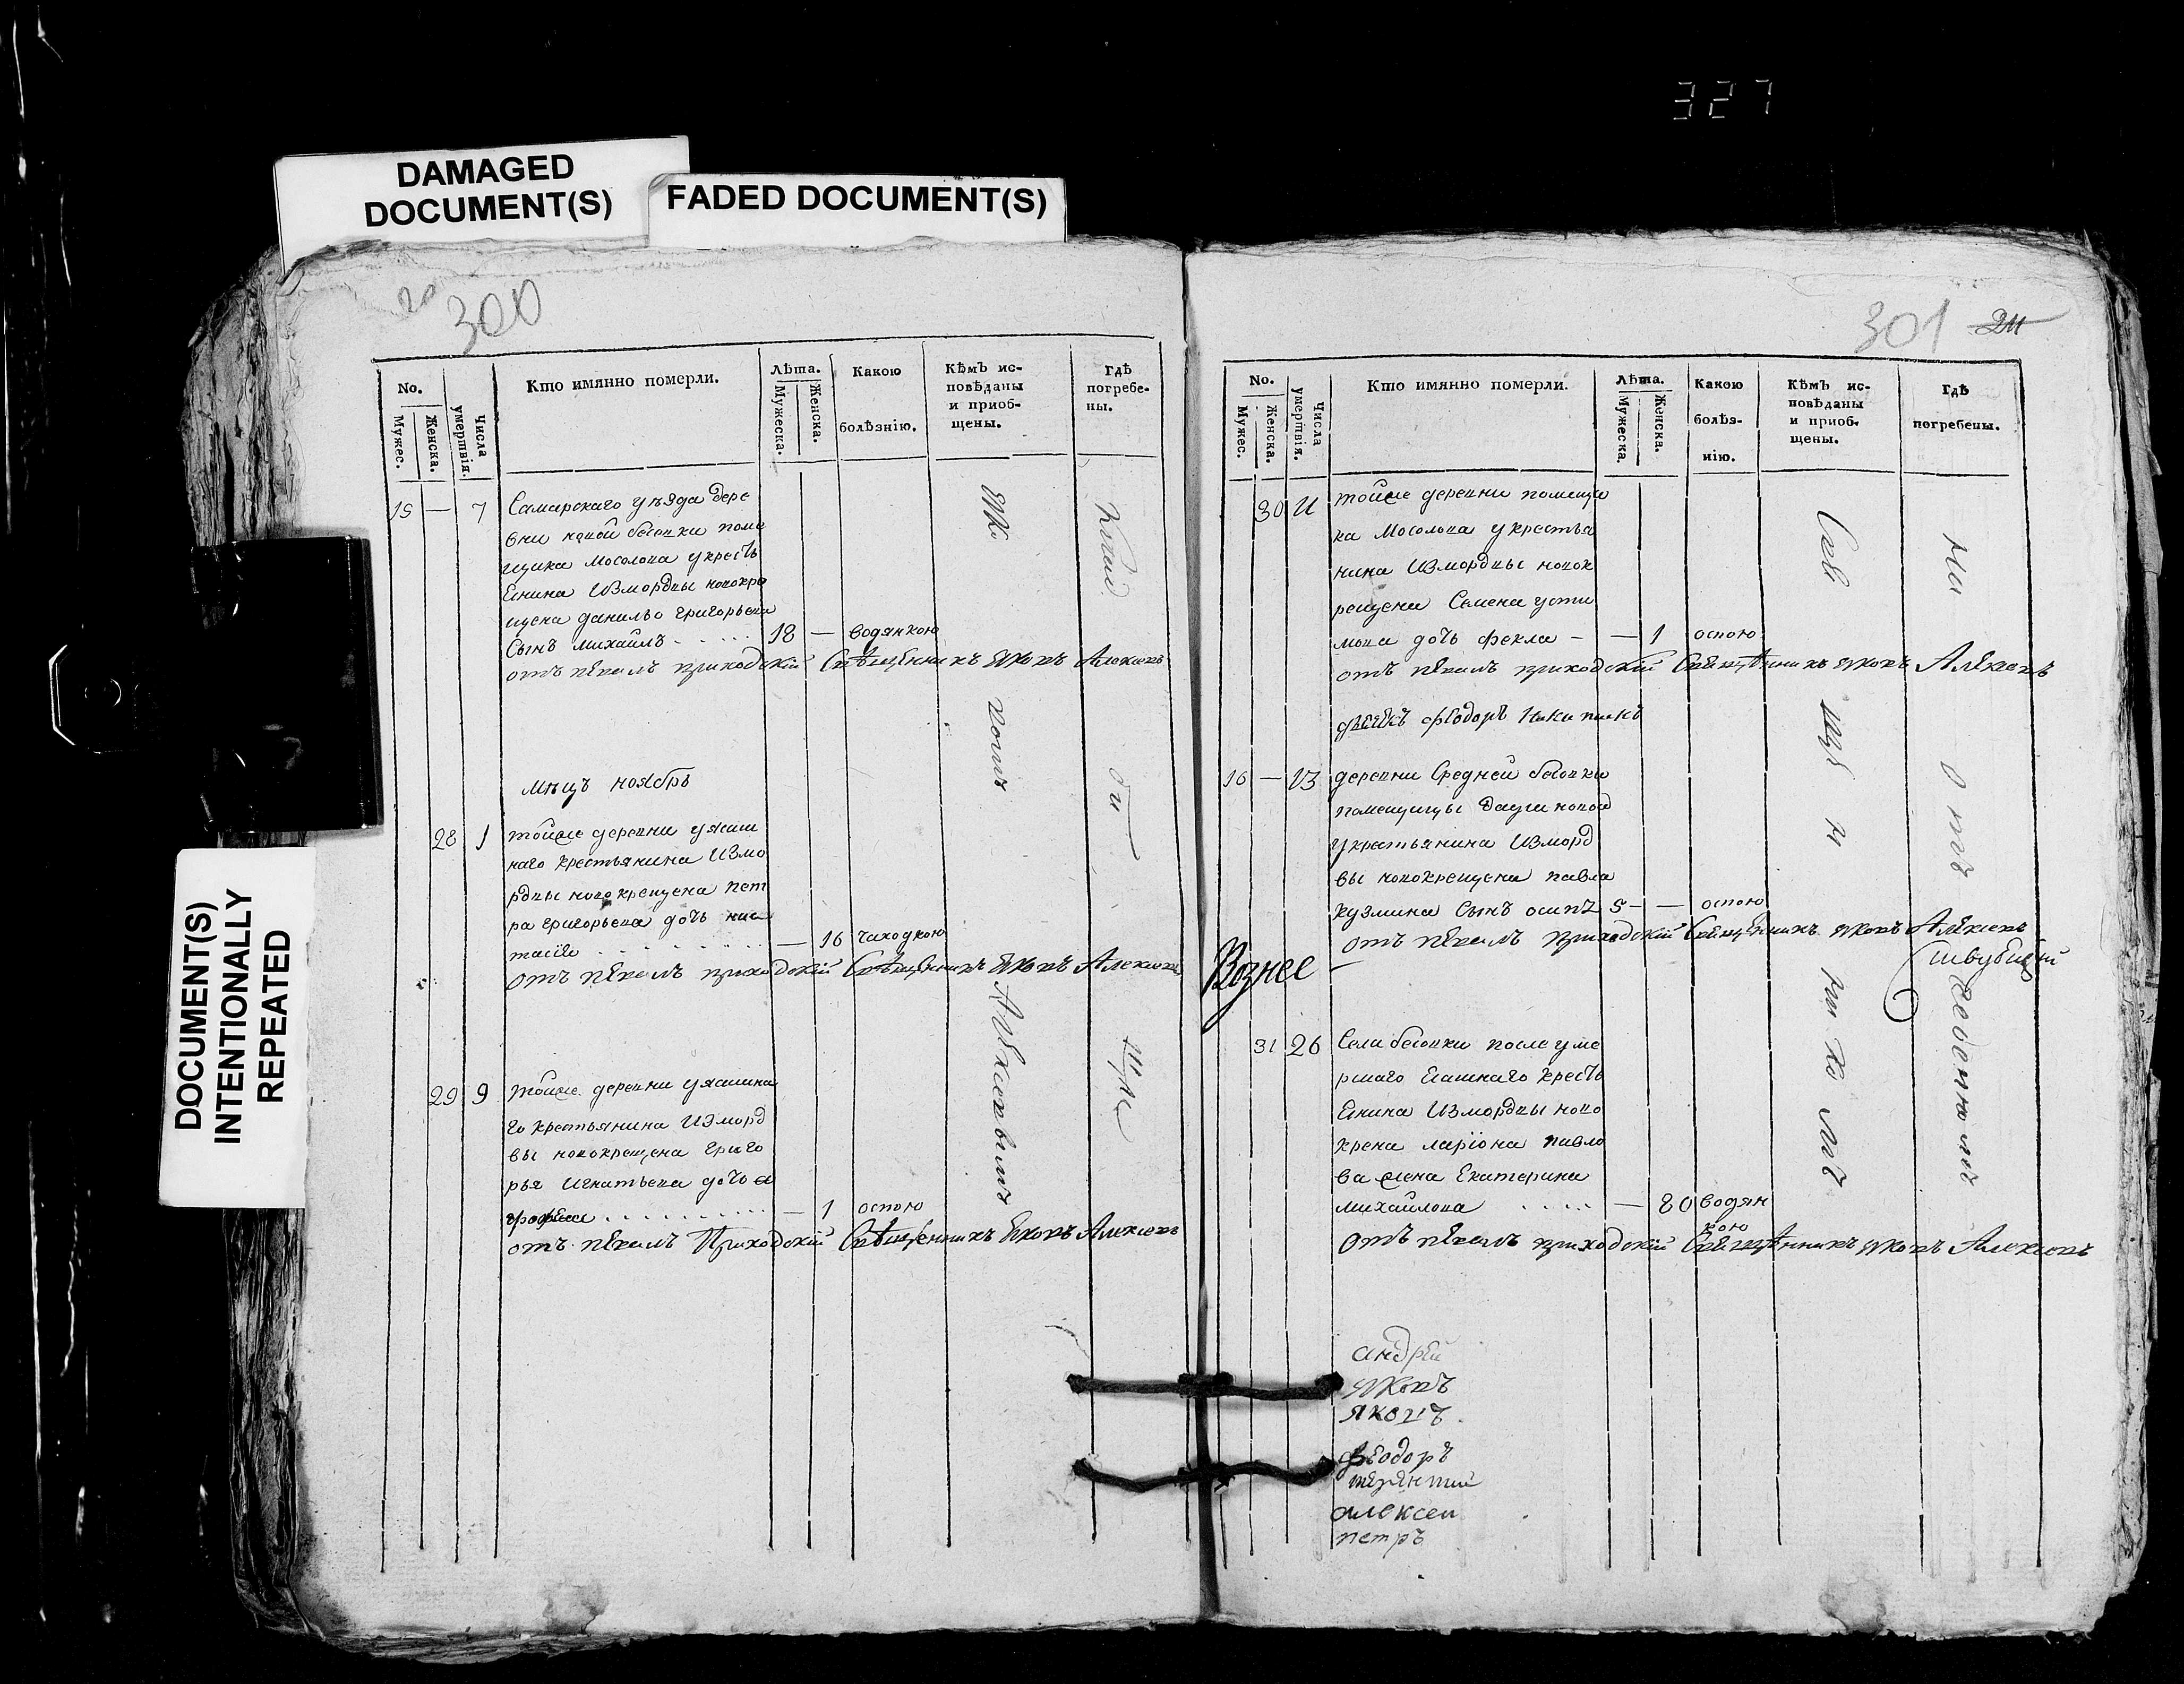 327
DAMAGED
DOCUMENT(S)
FADED DOCUMENT(S)
DOCUMENT(S)
INTENTIONALLY
REPEATED
20
300
No.
Мужес.
Женска.
Числа
умертвія.
Кто имянно померли.
Лѣта.
Мужеска.
Женска.
Какою
болѣзнію.
Кѣмъ ис-
повѣданы
и приоб-
щены.
Гдѣ
погребе-
ны.
15 — 7 Самарскаго уѣзда дере
вни новой бесовки поме
щика Мосолова укресть
Енина Измордвы новокре
щена данилы григорьева
Сынъ михаилъ 18 — водянкою
отъ пѣвалъ приходскій Свѣщенникъ Яковъ Алексѣевъ
мѣцъ ноябрь
28 1 тойже деревни уясаш
наго крестьянина Измо
рдвы новокрещена пет
ра григорьева дочь нас
тасія — 16 чахоткою
отъ пѣвалъ приходскій Свѣщенникъ Яковъ Алексѣевъ
29 9 тойже деревни уясашна
го крестьянина Изморд
вы новокрещена григо
рья игнатьева дочь а
грофена — 1 оспою
отъ пѣвалъ Приходскій Свѣщенникъ Яковъ Алексѣевъ
Яко
вомъ
Алексѣевымъ
301 211
No.
Мужес.
Женска.
Числа
умертвія.
Кто имянно померли.
Лѣта.
Мужеска.
Женска.
Какою
болѣз-
нію.
Кѣмъ ис-
повѣданы
и приоб-
щены.
Гдѣ
погребены.
30 11 тойже деревни помещи
ка Мосолова укрестья
нина Измордвы новок
рещена Семена усти
мова дочь фекла — — 1 оспою
отъ пѣвалъ приходскій Священникъ яковъ Алексѣевъ
дьячекъ феодоръ
16 — 13 деревни Средней бесовки
помещицы Дашковой
укрестьянина Изморд
вы новокрещена павла
кузмина Сынъ осипъ 5 — — оспою
отъ пѣвалъ приходскій Священникъ яковъ Алексѣевъ
Вознес —
31 26 Села бесовки после уме
ршаго Ясашнаго кресть
Енина Измордвы ново
крена ларіона павло
ва жена Екатерина
михайлова — 80 водян
кою
отъ пѣвалъ приходскій Священникъ яковъ Алексѣевъ
андрей
яковъ
яковъ
феодоръ
терентий
алексеи
петръ